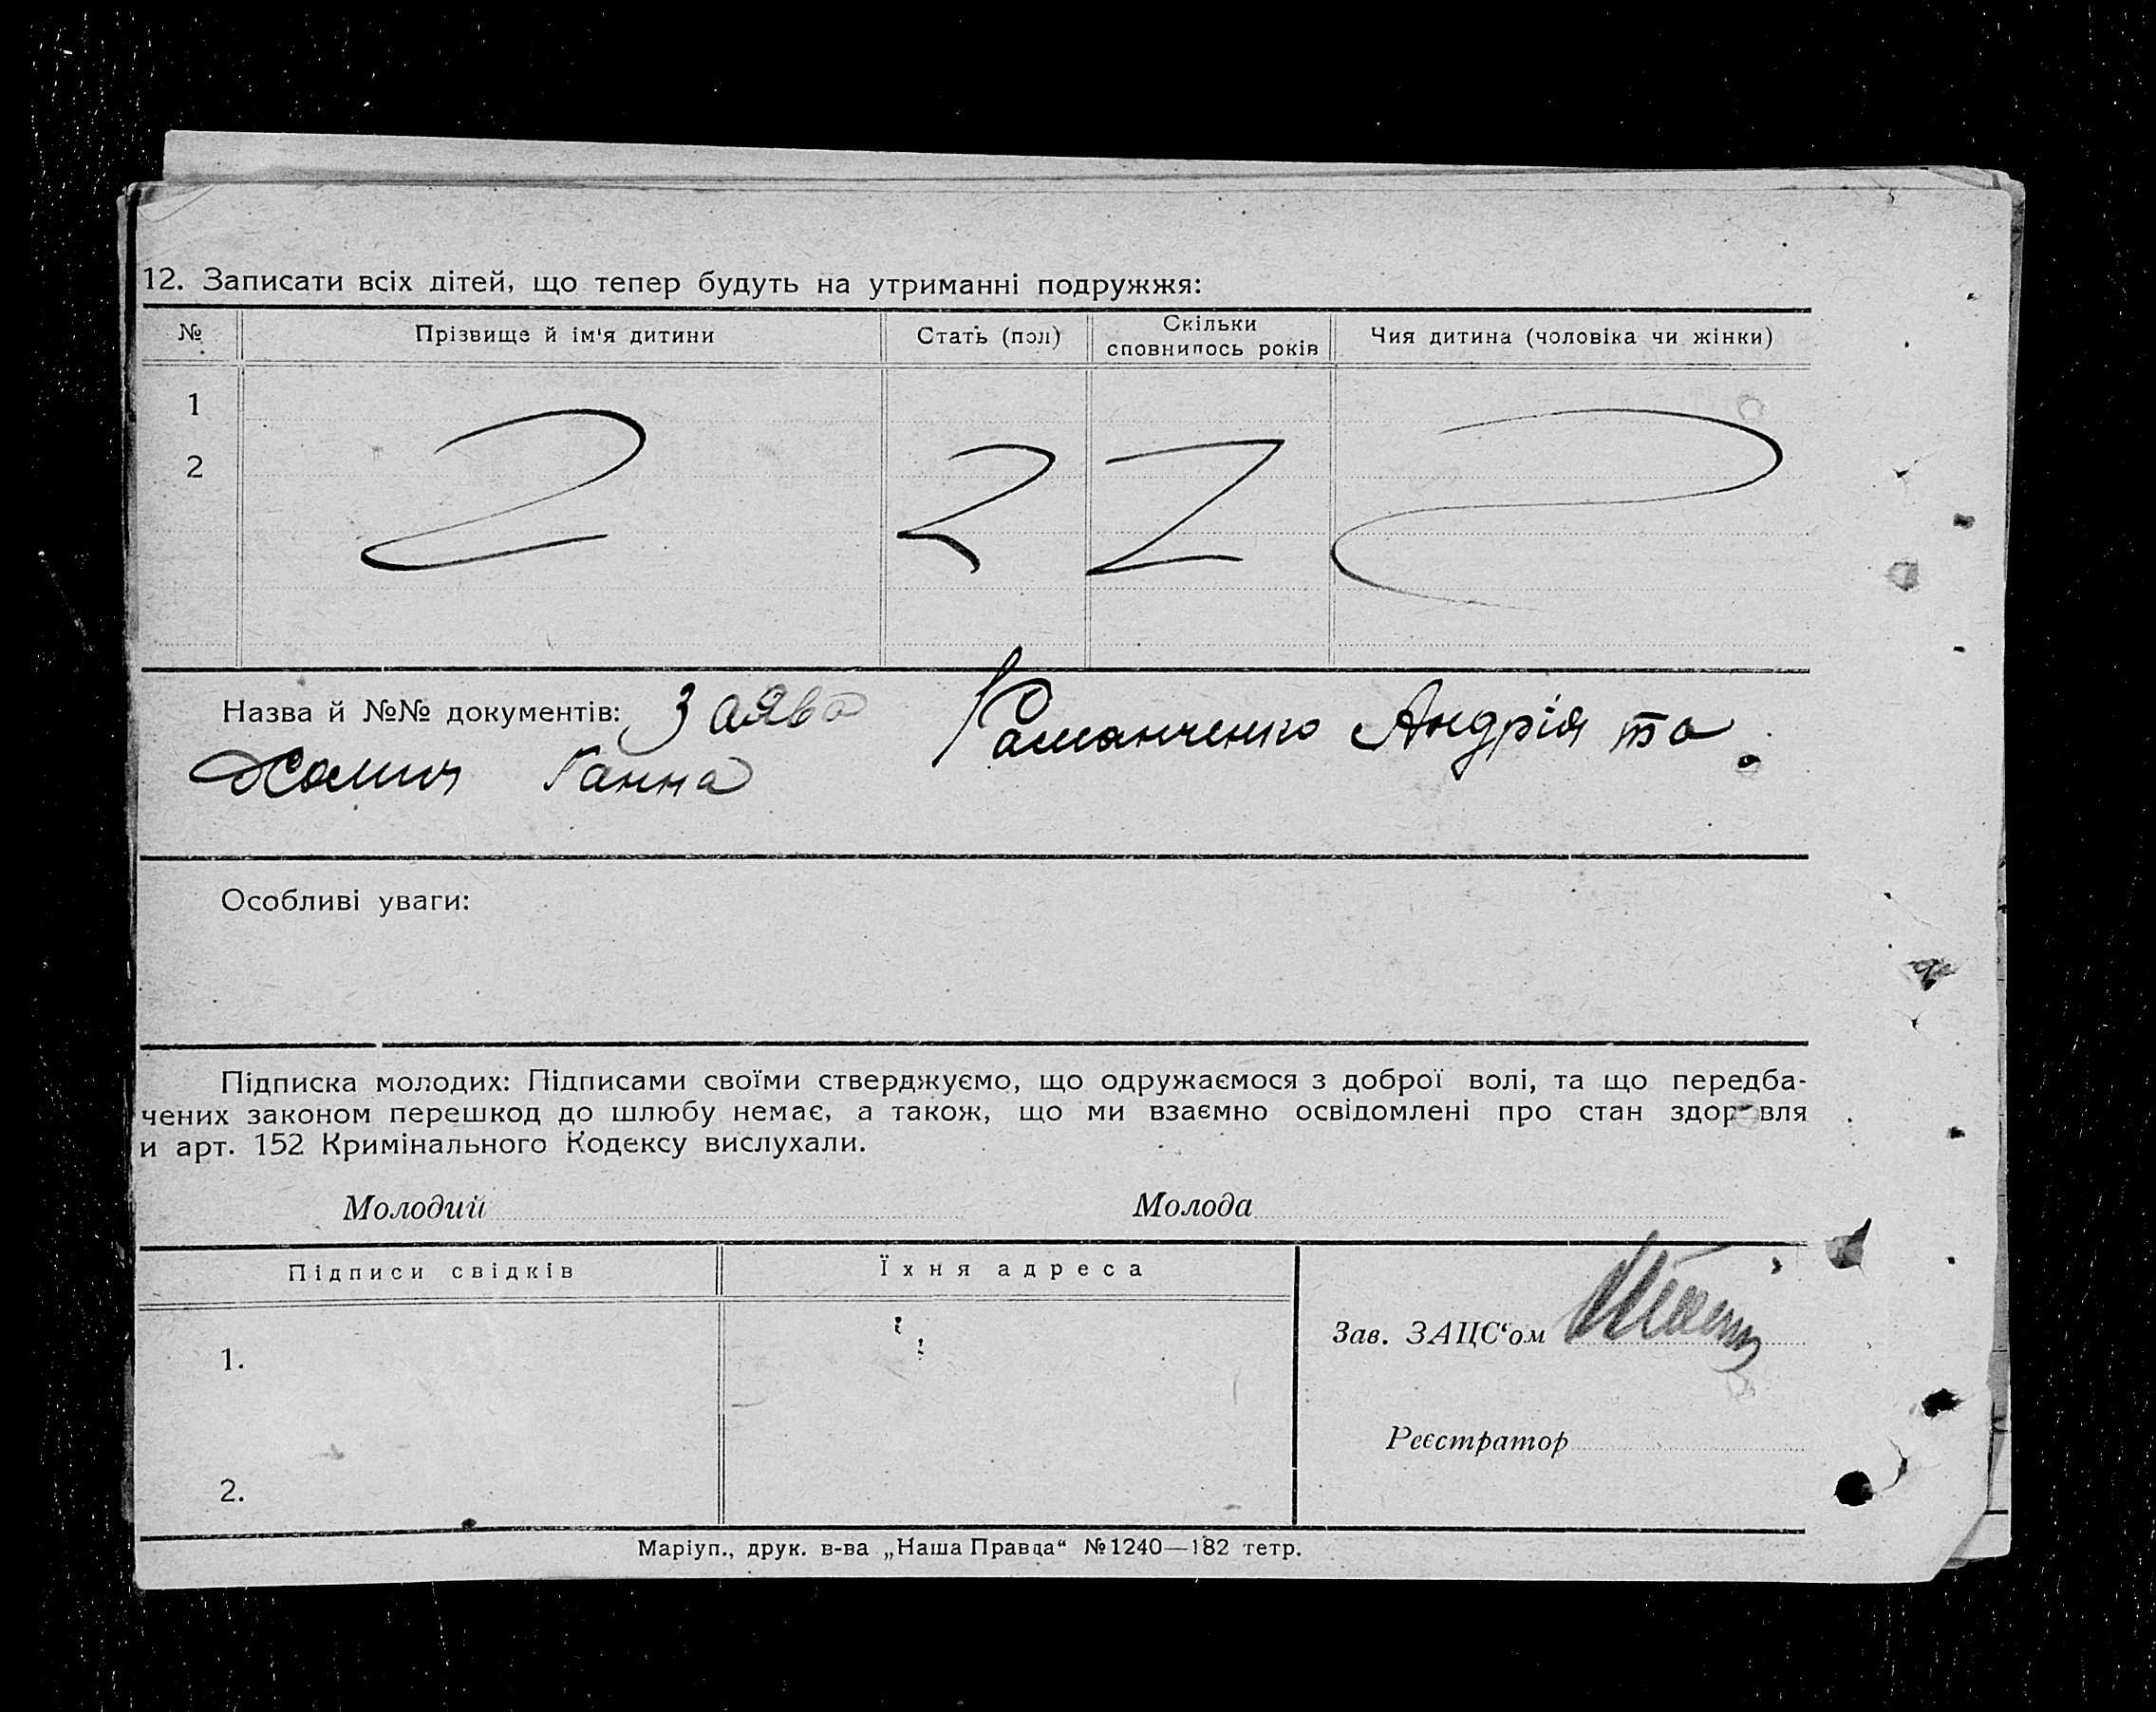 12. Записати всіх дітей, що тепер будуть на утриманні подружжя:
№ Прізвище й ім'я дитини Стать (пол) Скільки сповнилось років Чия дитина (чоловіка чи жінки)
1
2
Назва й №№ документів: Заява Романченко Андрія та
Ганна
Особливі уваги:
Підписка молодих: Підписами своїми стверджуємо, що одружаємося з доброї волі, та що передба-
чених законом перешкод до шлюбу немає, а також, що ми взаємно освідомлені про стан здоровля
и арт. 152 Кримінального Кодексу вислухали.
Молодий Молода
Підписи свідків Їхня адреса
Зав. ЗАЦС'ом
1.
Реєстратор
2.
Маріуп., друк. в-ва „Наша Правда“ №1240—182 тетр.